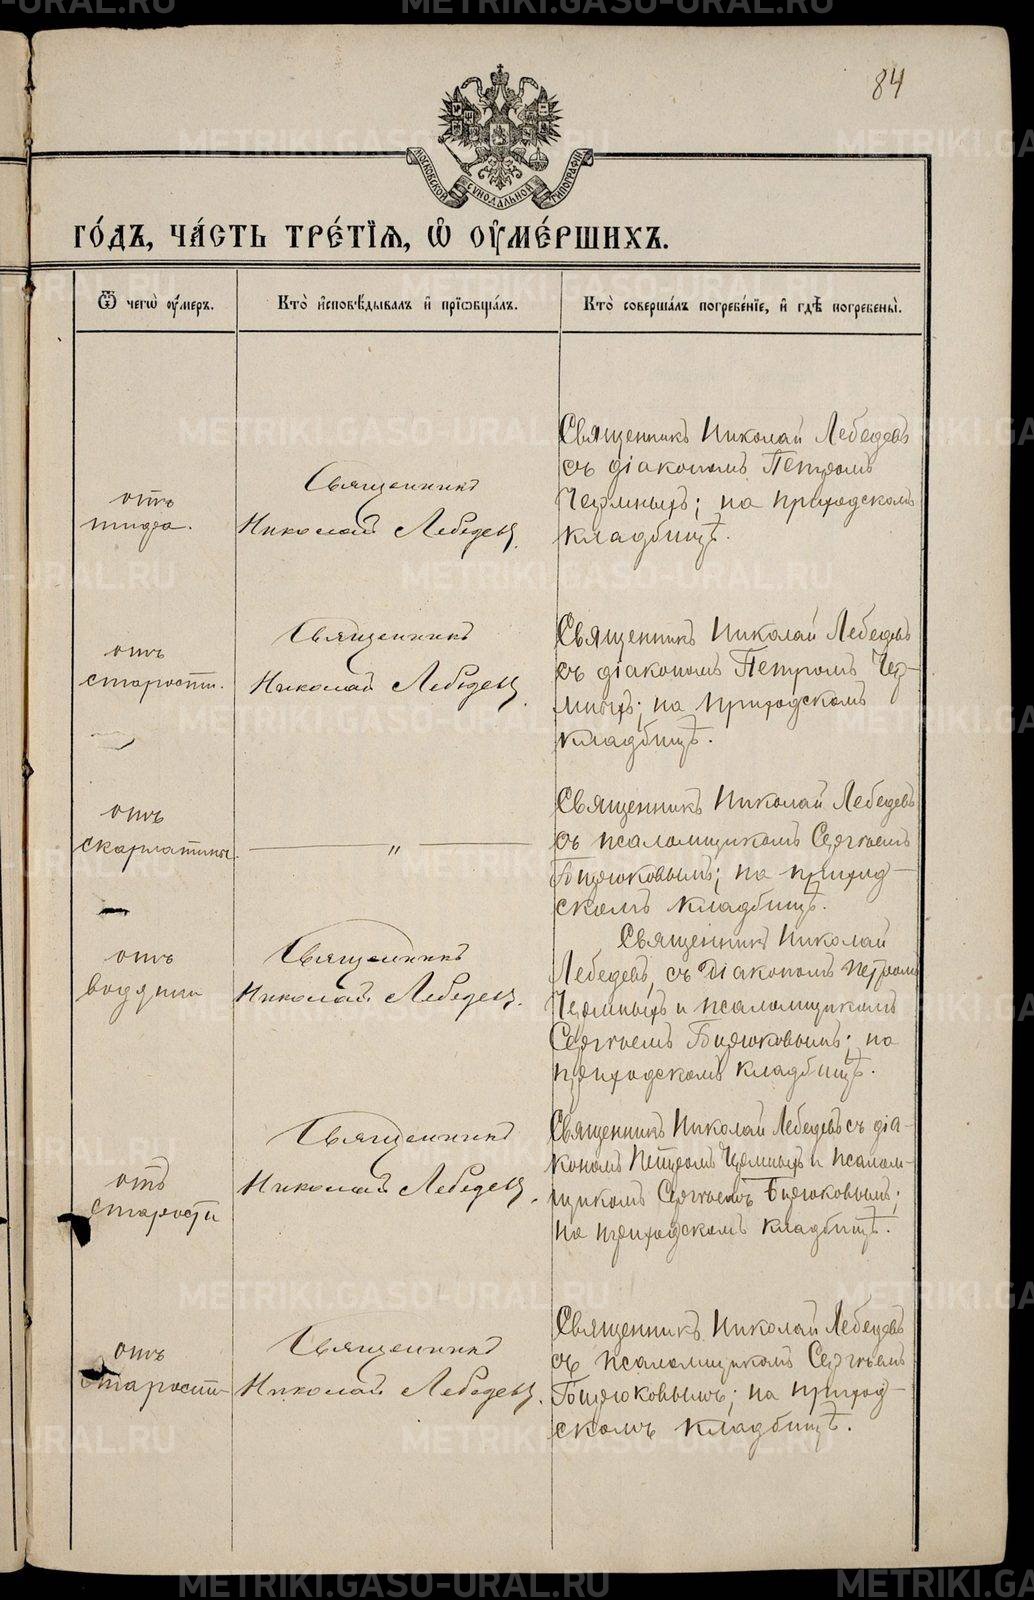 84
МОСКОВСКОЙ СѴНОДАЛЬНОЙ ТИПОГРАФІИ
ГО́ДЪ, ЧА́СТЬ ТРЕ́ТІѦ, Ѡ҆ ОУ҆МЕ́РШИХЪ.
Ѿ чегѡ̀ оу҆́меръ.
Кто̀ и҆сповѣ́дывалъ и҆ прїѡбща́лъ.
Кто̀ соверша́лъ погребе́нїе, и҆ гдѣ̀ погребены̀.
отъ
тифа.
Священникъ
Николай Лебедевъ.
Священникъ Николай Лебедевъ
съ діакономъ Петромъ
Чермныхъ; на приходскомъ
кладбищѣ.
отъ
старости.
Священникъ
Николай Лебедевъ.
Священникъ Николай Лебедевъ
съ діакономъ Петромъ Чер-
мныхъ; на приходскомъ
кладбищѣ.
отъ
скарлатины.
— „ —
Священникъ Николай Лебедевъ
съ псаломщикомъ Сергѣемъ
Бирюковымъ; на приход-
скомъ кладбищѣ.
отъ
водянки
Священникъ
Николай Лебедевъ.
Священникъ Николай
Лебедевъ, съ діакономъ Петромъ
Чермныхъ и псаломщикомъ
Сергѣемъ Бирюковымъ; на
приходскомъ кладбищѣ.
отъ
старости
Священникъ
Николай Лебедевъ.
Священникъ Николай Лебедевъ съ діа-
кономъ Петромъ Чермныхъ и псалом-
щикомъ Сергѣемъ Бирюковымъ;
на приходскомъ кладбищѣ.
отъ
старости
Священникъ
Николай Лебедевъ.
Священникъ Николай Лебедевъ
съ псаломщикомъ Сергѣемъ
Бирюковымъ; на приход-
скомъ кладбищѣ.
METRIKI.GASO-URAL.RU